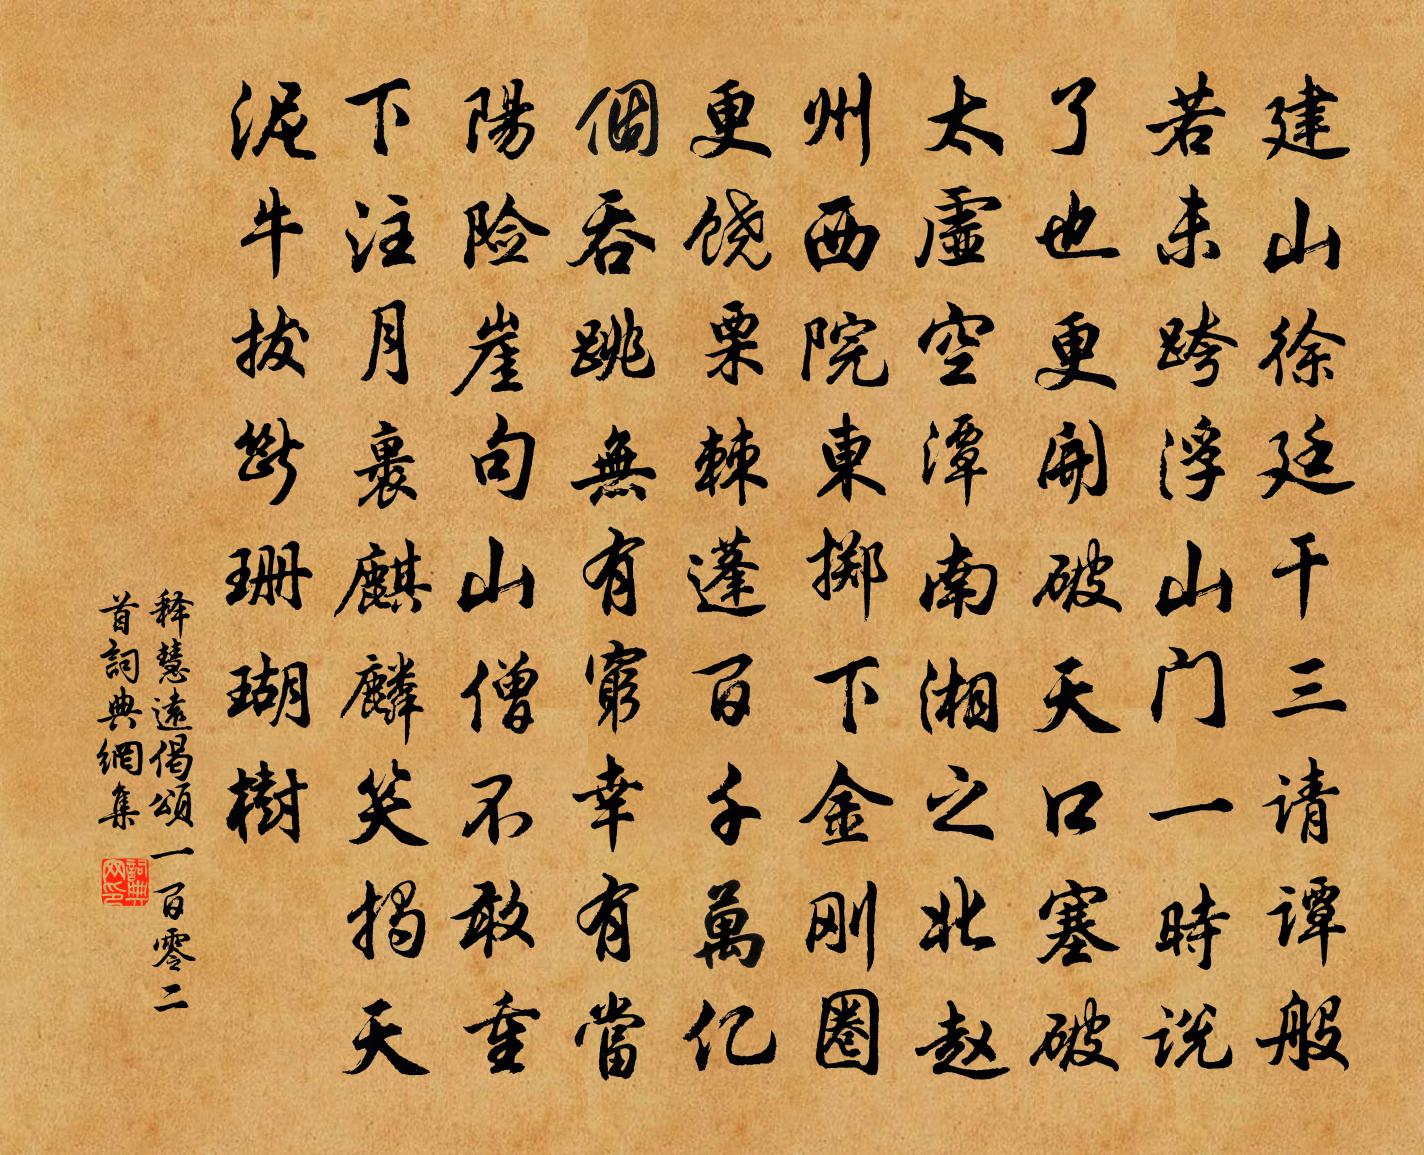 建山徐廷干三请谭般
若未跨浮山门一時说
了也更開破天口塞破
太虚空潭南湘之北赵
州西院東掷下金刚圈
更饶栗棘蓬百千萬亿
個吞跳無有窮幸有當
陽险崖句山僧不敢重
下注月裏麒麟笑揭天
泥牛拔断珊瑚樹
释慧遠偈頌一百零二
首詞典網集
詞典